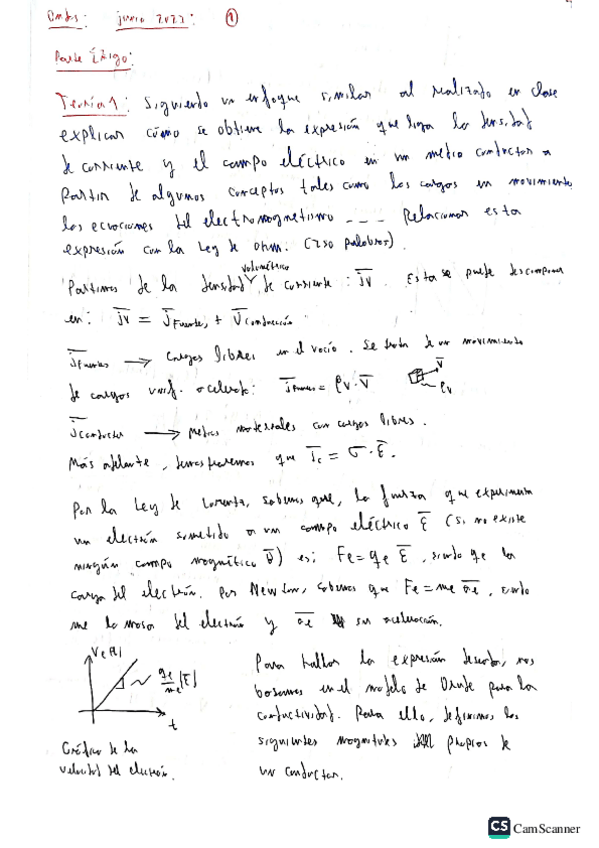 junio 2022: 1
Parte Íñigo:
Teoría 1: Siguiendo un enfoque similar al realizado en clase
explicar cómo se obtiene la expresión que liga la densidad
de corriente y el campo eléctrico en un medio conductor a
partir de algunos conceptos tales como las cargas en movimiento,
las ecuaciones del electromagnetismo ---- Relacionar esta
expresión con la Ley de Ohm. (250 palabras).
Partimos de la densidad volumétrica de corriente: J̅v. Esta se puede descomponer
en: J̅v = J̅Fuentes + J̅conducción
J̅Fuentes → cargas libres en el vacío. Se trata de un movimiento
de cargas unif. acelerado: J̅Fuentes = ρv · v̅ v̅ ρv
J̅conductor → medios materiales con cargas libres.
Más adelante, demostraremos que J̅c = σ · E̅.
Por la Ley de Lorentz, sabemos que, la fuerza que experimenta
un electrón sometido a un campo eléctrico E̅ (si no existe
ningún campo magnético B̅) es: Fe = qe E̅, siendo qe la
carga del electrón. Por Newton, sabemos que Fe = me a̅e, siendo
me la masa del electrón y a̅e su aceleración.
Ve(t)
qe/me |E̅|
t
Gráfica de la
velocidad del electrón.
Para hallar la expresión deseada, nos
basamos en el modelo de Drude para la
conductividad. Para ello, definimos las
siguientes magnitudes propias de
un conductor.
CS CamScanner